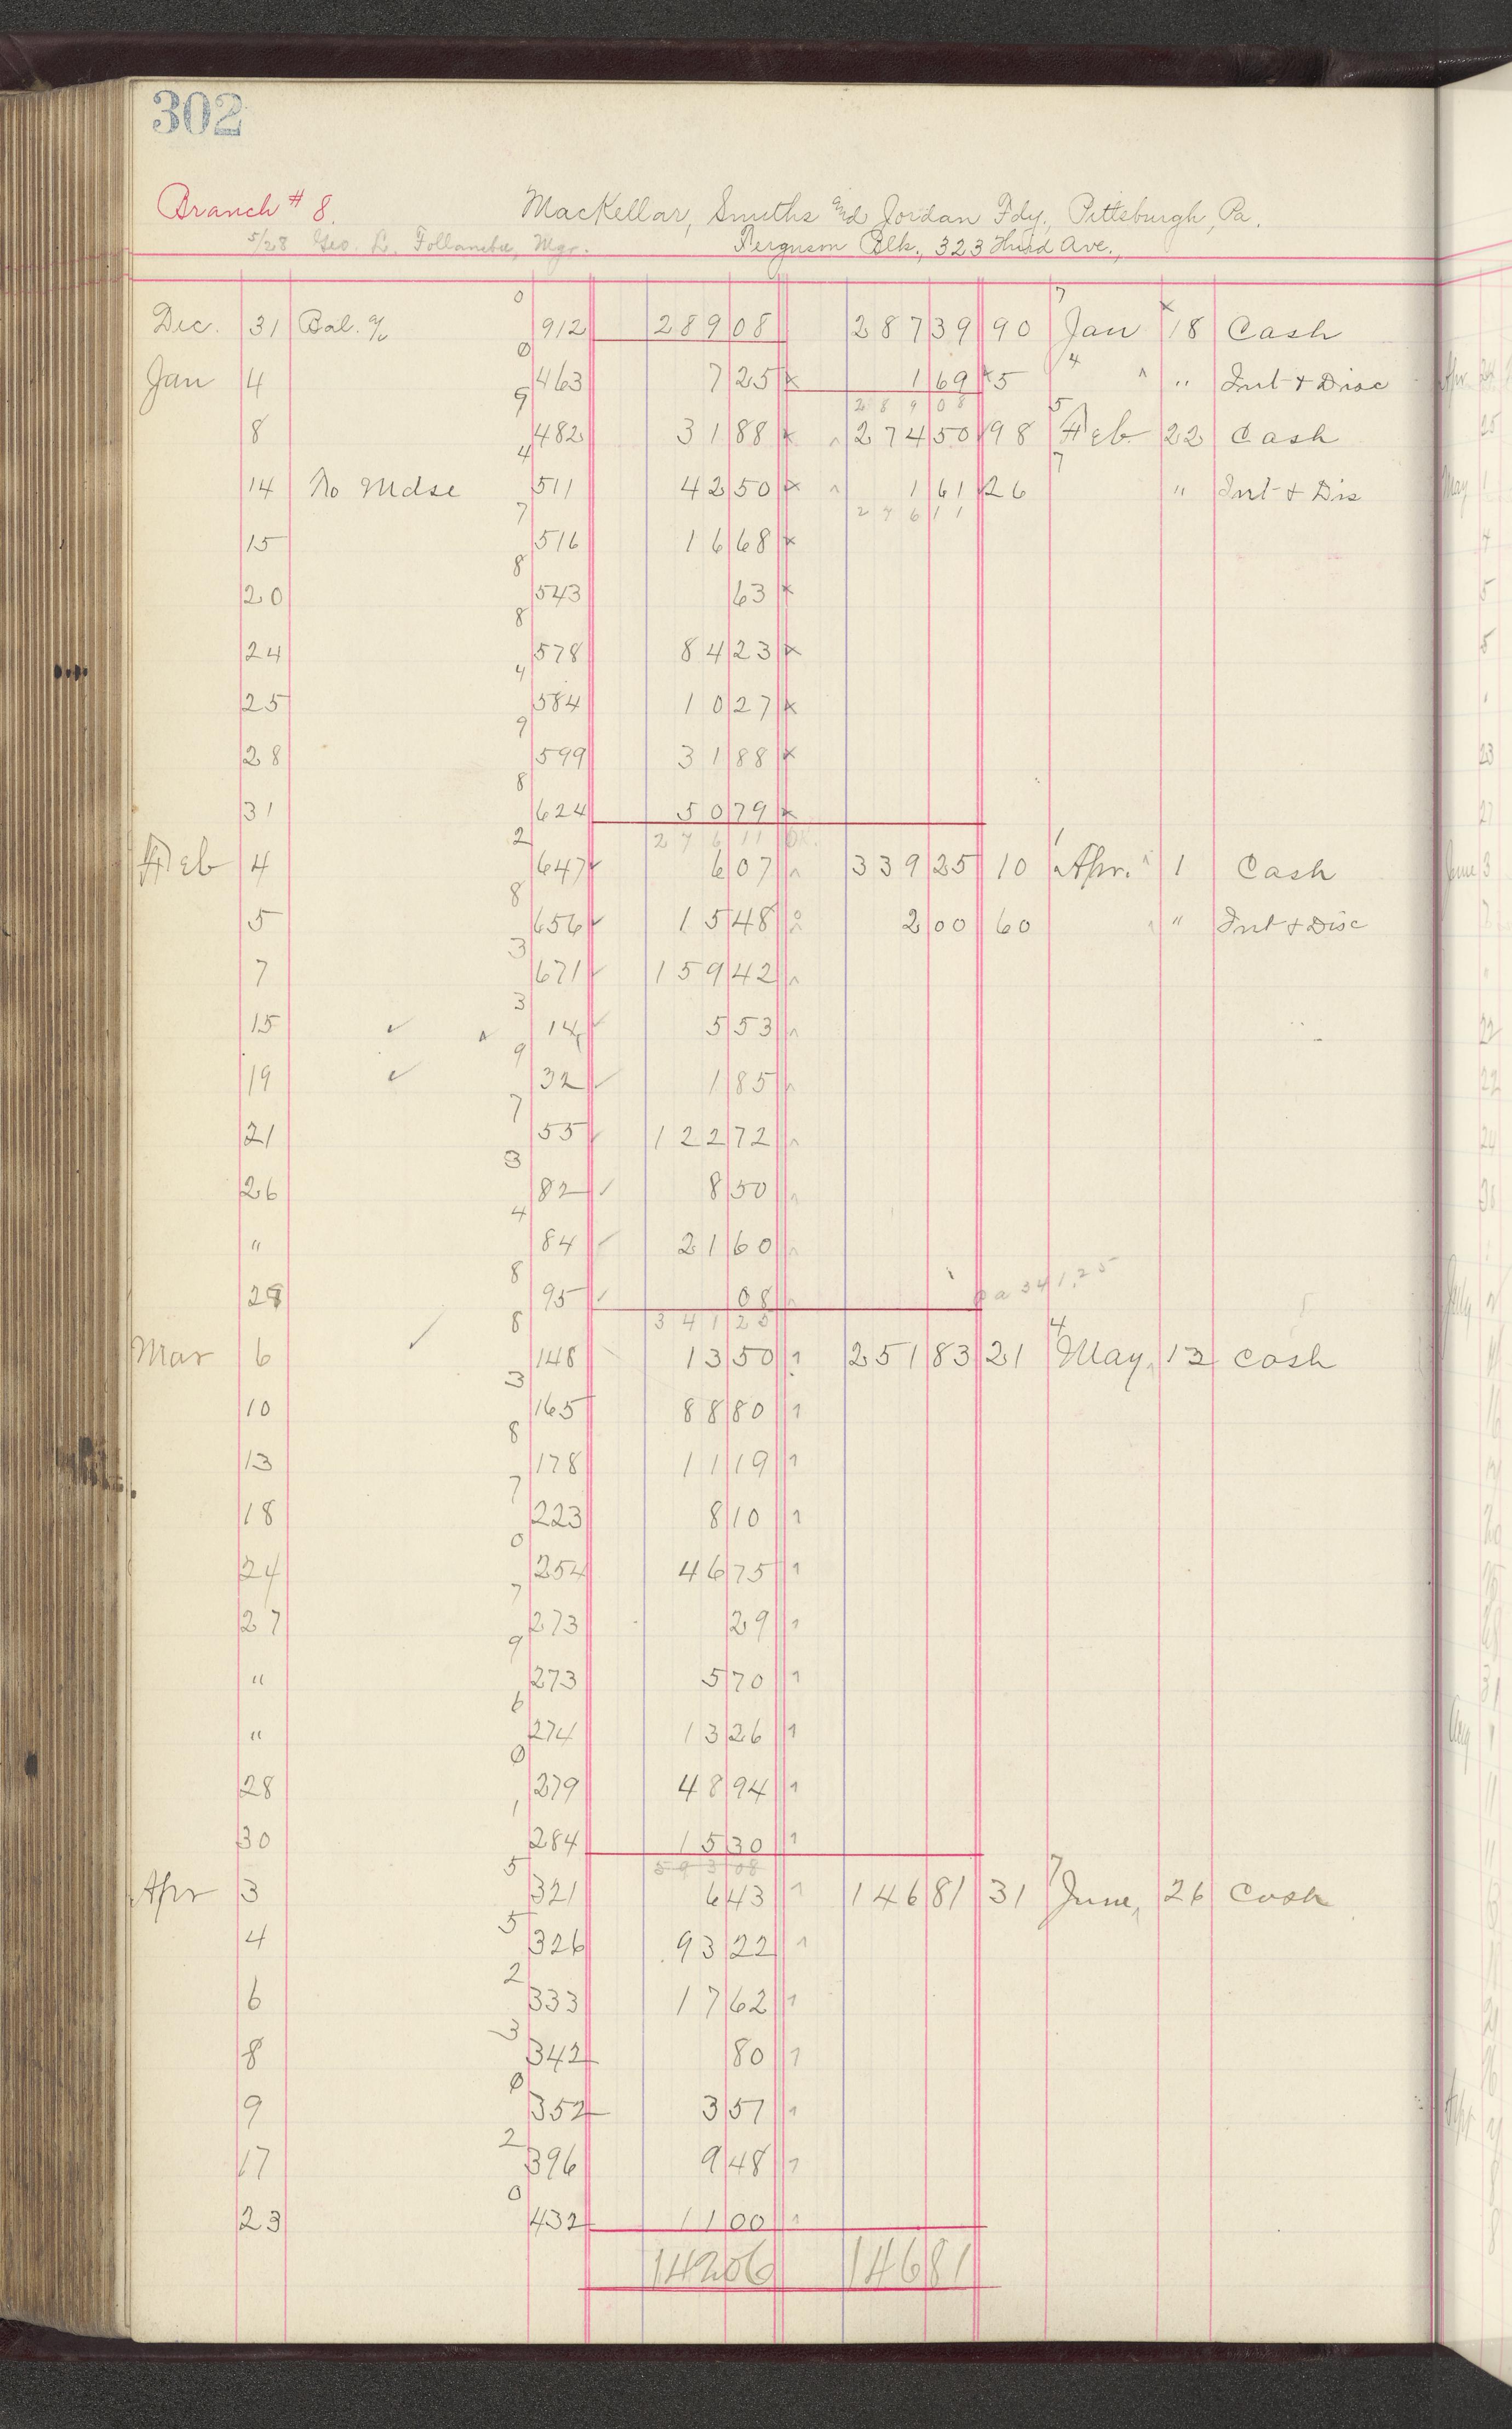 302
Branch # 8. MacKellar, Smiths and Jordan Fdy., Pittsburgh, Pa.
5/28 Geo. L. Follansbee, Mgr. Ferguson Blk., 323 Third Ave.,
0 7
Dec. 31 Bal. a/c 912 289 08 287 39 90 Jan 18 Cash
0 4
Jan 4 463 7 25 x 1 69 5 " " Int & Disc
9 28908 5
8 482 31 88 x 274 50 98 Feb 22 Cash
4 7
14 To Mdse 511 42 50 x 1 61 26 " Int & Dis
7 27611
15 516 16 68 x
8
20 543 63 x
8
24 578 84 23 x
4
25 584 10 27 x
9
28 599 31 88 x
8
31 624 50 79 x
2 276 11 OK. 1
Feb 4 647 ✓ 6 07 339 25 10 Apr. 1 Cash
8
5 656 ✓ 15 48 2 00 60 " Int & Disc
3
7 671 ✓ 159 42
3
15 ✓ 14 ✓ 5 53
9
19 ✓ 32 ✓ 1 85
7
21 55 ✓ 122 72
3
26 82 ✓ 8 50
4
" 84 ✓ 21 60
8
28 95 ✓ 08 341.25
8 341 25 4
Mar 6 ✓ 148 13 50 251 83 21 May 13 Cash
3
10 165 88 80
8
13 178 11 19
7
18 223 8 10
0
24 254 46 75
7
27 273 29
9
" 273 5 70
6
" 274 13 26
0
28 279 48 94
1
30 284 15 30
5 593 08 7
Apr 3 321 6 43 146 81 31 June 26 Cash
5
4 326 93 22
2
6 333 17 62
3
8 342 80
0
9 352 3 57
2
17 396 9 48
0
23 432 11 00
142 06 146 81